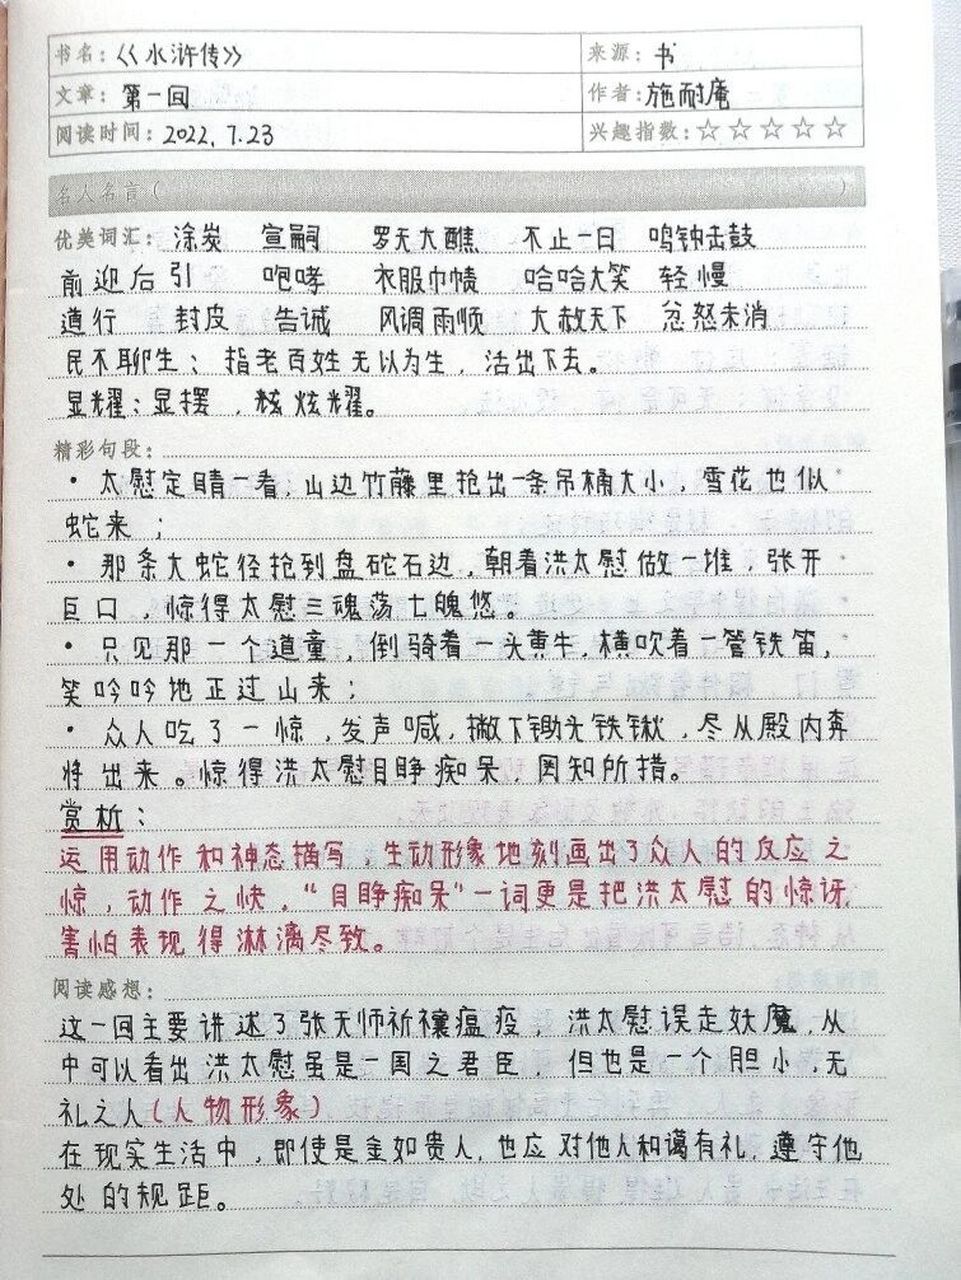 书名：《水浒传》 来源：书
文章：第一回 作者：施耐庵
阅读时间：2022.7.23 兴趣指数：☆☆☆☆☆
名人名言（ ）
优美词汇：涂炭 宣嗣 罗天大醮 不止一日 鸣钟击鼓
前迎后引 咆哮 衣服巾帻 哈哈大笑 轻慢
遵行 封皮 告诫 风调雨顺 大赦天下 忿怒未消
民不聊生：指老百姓无以为生，活出下去。
显耀：显摆，炫耀。
精彩句段：
· 太慰定睛一看，山边竹藤里抢出一条吊桶大小，雪花也似
蛇来；
· 那条大蛇径抢到盘砣石边，朝着洪太慰做一堆，张开
巨口，惊得太慰三魂荡七魄悠。
· 只见那一个道童，倒骑着一头黄牛，横吹着一管铁笛，
笑吟吟地正过山来；
· 众人吃了一惊，发声喊，撇下锄头铁锹，尽从殿内奔
将出来。惊得洪太慰目睁痴呆，罔知所措。
赏析：
运用动作和神态描写，生动形象地刻画出了众人的反应之
惊，动作之快。“目睁痴呆”一词更是把洪太慰的惊讶，
害怕表现得淋漓尽致。
阅读感想：
这一回主要讲述了张天师祈禳瘟疫，洪太慰误走妖魔，从
中可以看出洪太慰虽是一国之君臣，但也是一个胆小，无
礼之人（人物形象）
在现实生活中，即使是金如贵人，也应对他人和谒有礼，遵守他
处的规距。